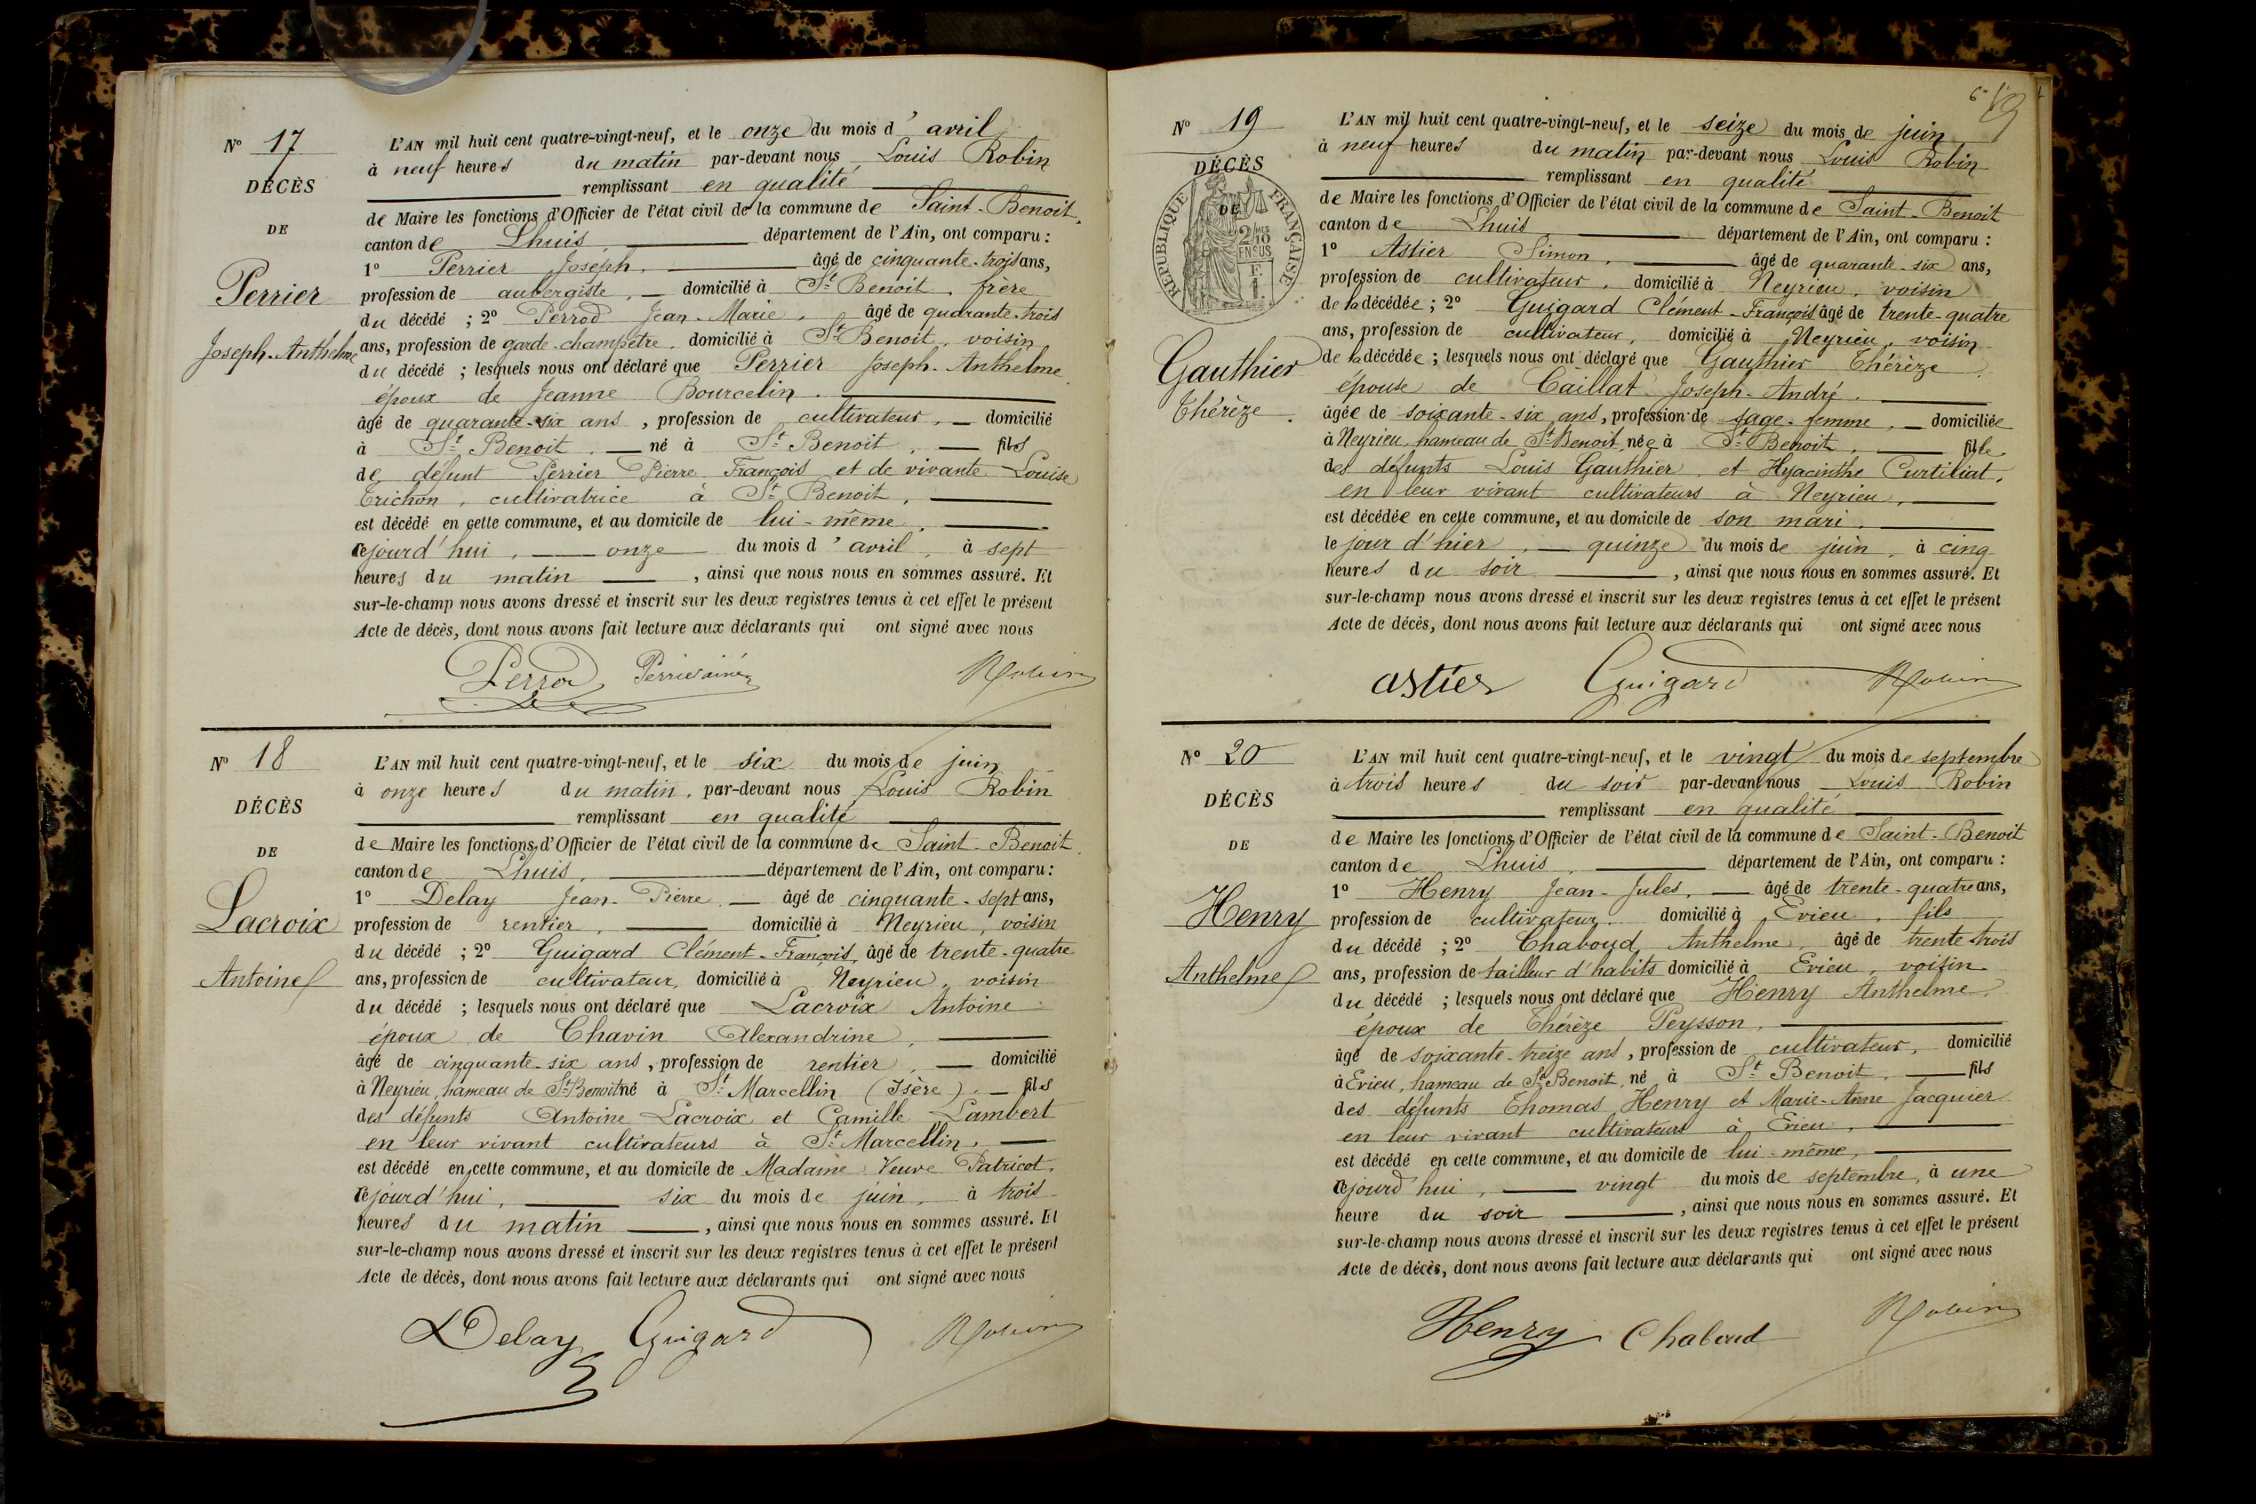 N° 17
DÉCÈS
DE
Perrier
Joseph-Anthelme
L'AN mil huit cent quatre-vingt-neuf, et le onze du mois d'avril
à neuf heures du matin par-devant nous Louis Robin
remplissant en qualité
de Maire les fonctions d'Officier de l'état civil de la commune de Saint-Benoit,
canton de Lhuis, département de l'Ain, ont comparu :
1° Perrier Joseph, âgé de cinquante-trois ans,
profession de aubergiste, domicilié à St Benoit, frère
du décédé ; 2° Perrod Jean-Marie, âgé de quarante-trois
ans, profession de garde-champêtre, domicilié à St Benoit, voisin
du décédé ; lesquels nous ont déclaré que Perrier Joseph-Anthelme
époux de Jeanne Bourcelin.
âgé de quarante-six ans, profession de cultivateur, domicilié
à St Benoit, né à St Benoit, fils
de défunt Perrier Pierre François et de vivante Louise
Trichon, cultivatrice à St Benoit,
est décédé en cette commune, et au domicile de lui-même,
cejourd'hui, onze du mois d'avril, à sept
heures du matin, ainsi que nous nous en sommes assuré. Et
sur-le-champ nous avons dressé et inscrit sur les deux registres tenus à cet effet le présent
Acte de décès, dont nous avons fait lecture aux déclarants qui ont signé avec nous
Perrod Perrier ainé Robin
N° 18
DÉCÈS
DE
Lacroix
Antoine
L'AN mil huit cent quatre-vingt-neuf, et le six du mois de juin
à onze heures du matin, par-devant nous Louis Robin
remplissant en qualité
de Maire les fonctions d'Officier de l'état civil de la commune de Saint-Benoit
canton de Lhuis, département de l'Ain, ont comparu :
1° Delay Jean-Pierre, âgé de cinquante-sept ans,
profession de rentier, domicilié à Neyrieu, voisin
du décédé ; 2° Guigard Clément-François, âgé de trente-quatre
ans, profession de cultivateur, domicilié à Neyrieu, voisin
du décédé ; lesquels nous ont déclaré que Lacroix Antoine
époux de Chavin Alexandrine,
âgé de cinquante-six ans, profession de rentier, domicilié
à Neyrieu, hameau de St Benoit né à St Marcellin (Isère), fils
des défunts Antoine Lacroix et Camille Lambert
en leur vivant cultivateurs à St Marcellin,
est décédé en cette commune, et au domicile de Madame Veuve Patricot,
cejourd'hui, six du mois de juin, à trois
heures du matin, ainsi que nous nous en sommes assuré. Et
sur-le-champ nous avons dressé et inscrit sur les deux registres tenus à cet effet le présent
Acte de décès, dont nous avons fait lecture aux déclarants qui ont signé avec nous
Delay Guigard Robin
N° 19
DÉCÈS
DE
RÉPUBLIQUE FRANÇAISE
2/10
EN SUS
Gauthier
Thérèze.
L'AN mil huit cent quatre-vingt-neuf, et le seize du mois de juin
à neuf heures du matin par-devant nous Louis Robin
remplissant en qualité
de Maire les fonctions d'Officier de l'état civil de la commune de Saint-Benoit
canton de Lhuis département de l'Ain, ont comparu :
1° Astier Simon, âgé de quarante-six ans,
profession de cultivateur, domicilié à Neyrieu, voisin
de la décédée ; 2° Guigard Clément-François âgé de trente-quatre
ans, profession de cultivateur, domicilié à Neyrieu, voisin
de la décédée ; lesquels nous ont déclaré que Gauthier Thérèze
épouse de Caillat Joseph-André,
âgée de soixante-six ans, profession de sage-femme, domiciliée
à Neyrieu, hameau de St Benoit, née à St Benoit, fille
des défunts Louis Gauthier, et Hyacinthe Curtiliat,
en leur vivant cultivateurs à Neyrieu,
est décédée en cette commune, et au domicile de son mari,
le jour d'hier, quinze du mois de juin, à cinq
heures du soir, ainsi que nous nous en sommes assuré. Et
sur-le-champ nous avons dressé et inscrit sur les deux registres tenus à cet effet le présent
Acte de décès, dont nous avons fait lecture aux déclarants qui ont signé avec nous
astier Guigard Robin
N° 20
DÉCÈS
DE
Henry
Anthelme
L'AN mil huit cent quatre-vingt-neuf, et le vingt du mois de septembre
à trois heures du soir par-devant nous Louis Robin
remplissant en qualité
de Maire les fonctions d'Officier de l'état civil de la commune de Saint-Benoit
canton de Lhuis, département de l'Ain, ont comparu :
1° Henry Jean-Jules, âgé de trente-quatre ans,
profession de cultivateur domicilié à Evieu, fils
du décédé ; 2° Chaboud Anthelme, âgé de trente trois
ans, profession de tailleur d'habits domicilié à Evieu, voisin
du décédé ; lesquels nous ont déclaré que Henry Anthelme,
époux de Thérèze Peysson,
âgé de soixante-treize ans, profession de cultivateur, domicilié
à Evieu, hameau de St Benoit, né à St Benoit, fils
des défunts Thomas Henry et Marie-Anne Jacquier
en leur vivant cultivateurs à Evieu,
est décédé en cette commune, et au domicile de lui-même,
cejourd'hui, vingt du mois de septembre, à une
heure du soir, ainsi que nous nous en sommes assuré. Et
sur-le-champ nous avons dressé et inscrit sur les deux registres tenus à cet effet le présent
Acte de décès, dont nous avons fait lecture aux déclarants qui ont signé avec nous
Henry Chaboud Robin